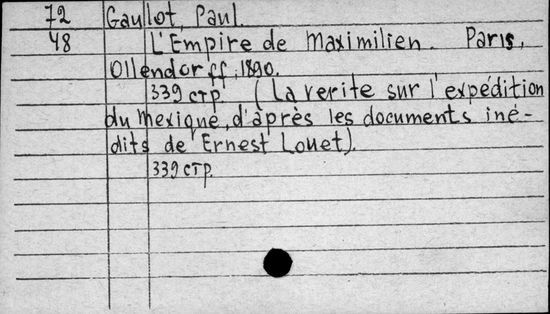 72 Gaullot, Paul.
48 L'Empire de Maximilien. Paris,
Ollendorff, 1890.
339 стр. (La verite sur l'expédition
du Mexique, d'après les documents iné-
dits de Ernest Louet).
339 стр.